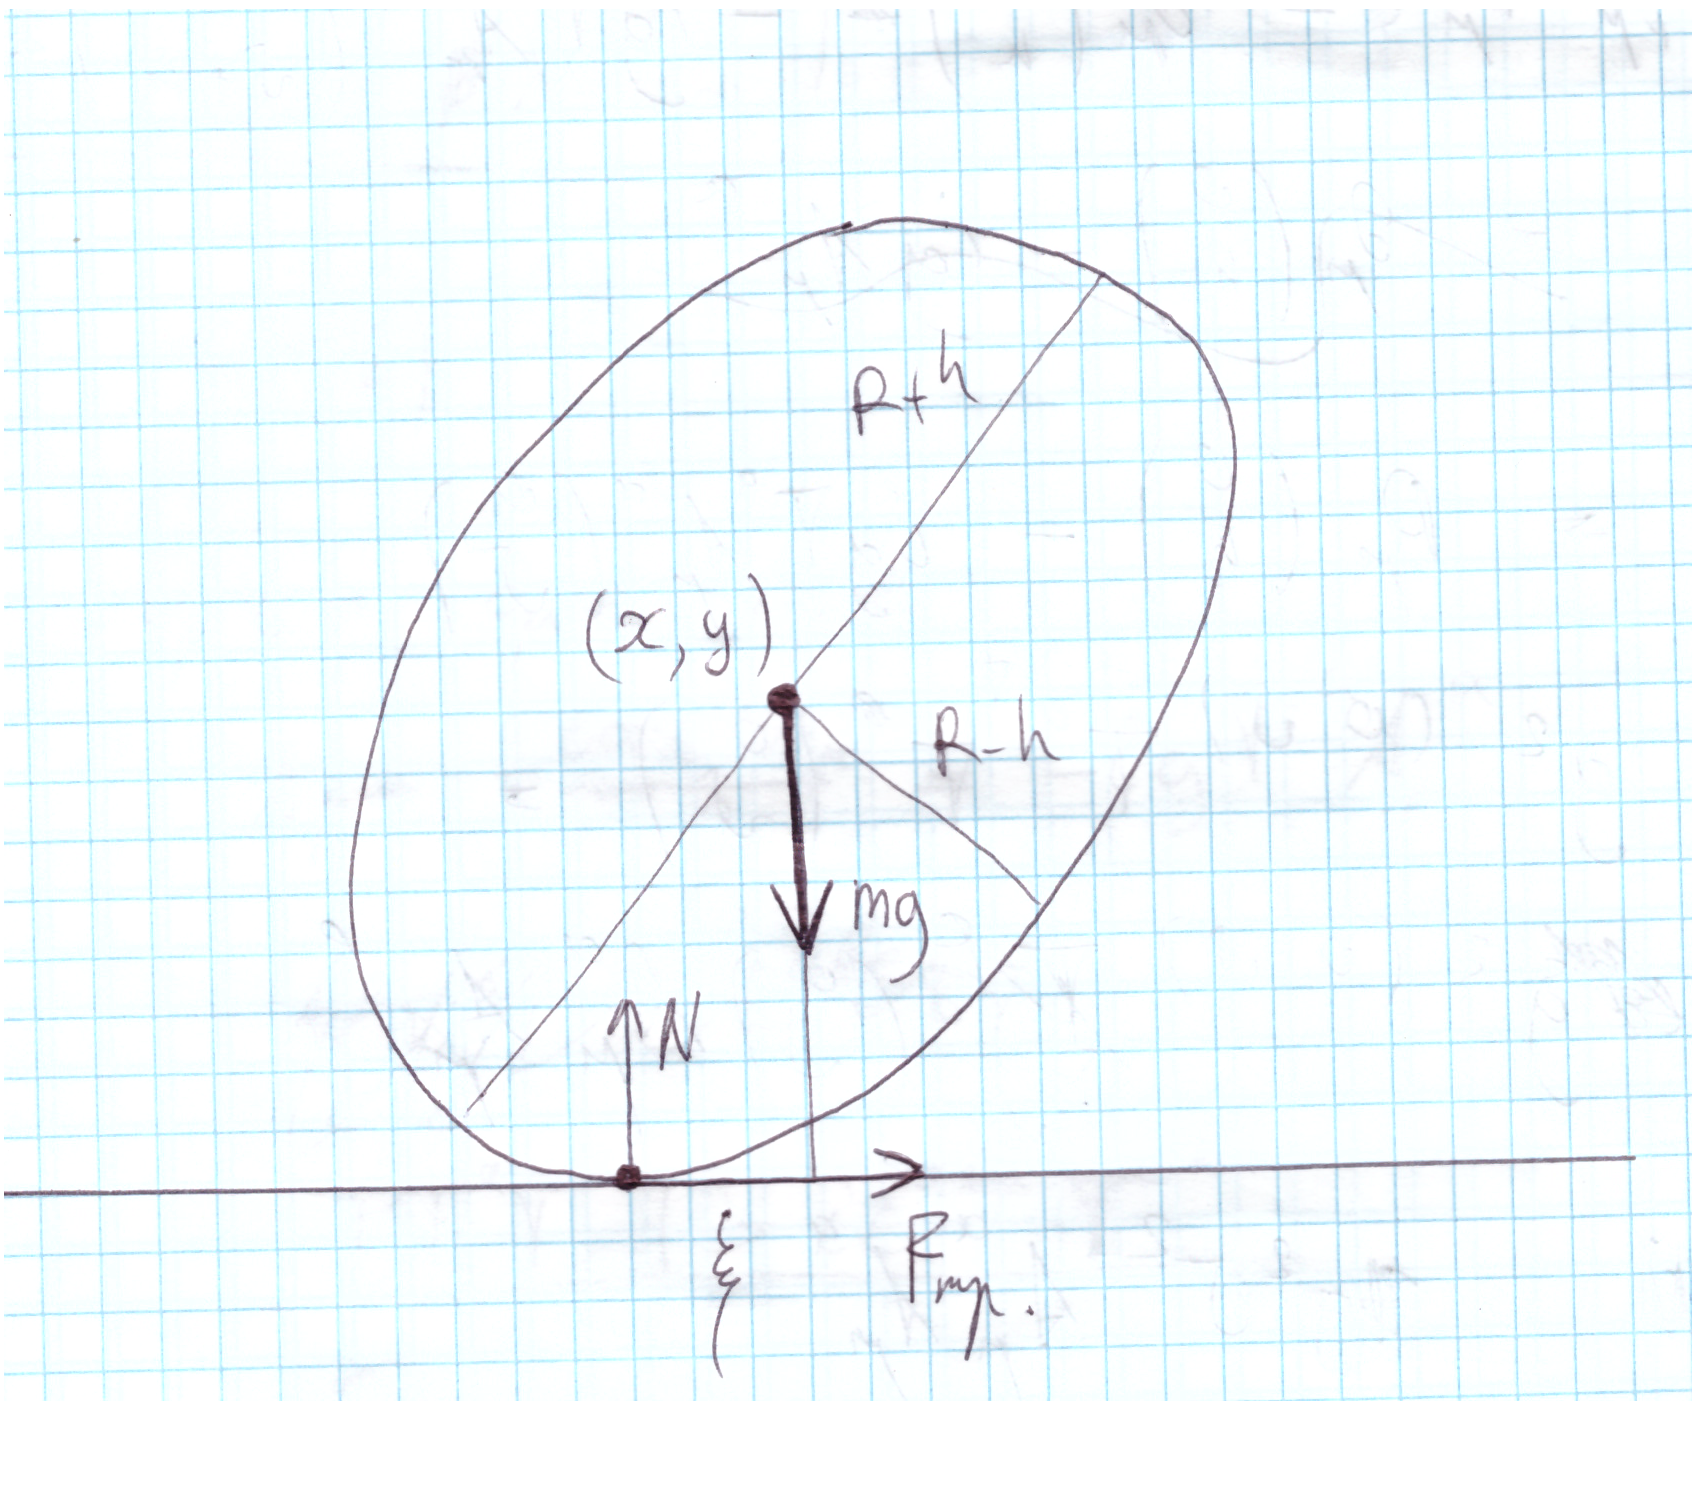 R+h
(x, y)
R-h
mg
N
ξ
Fтр.